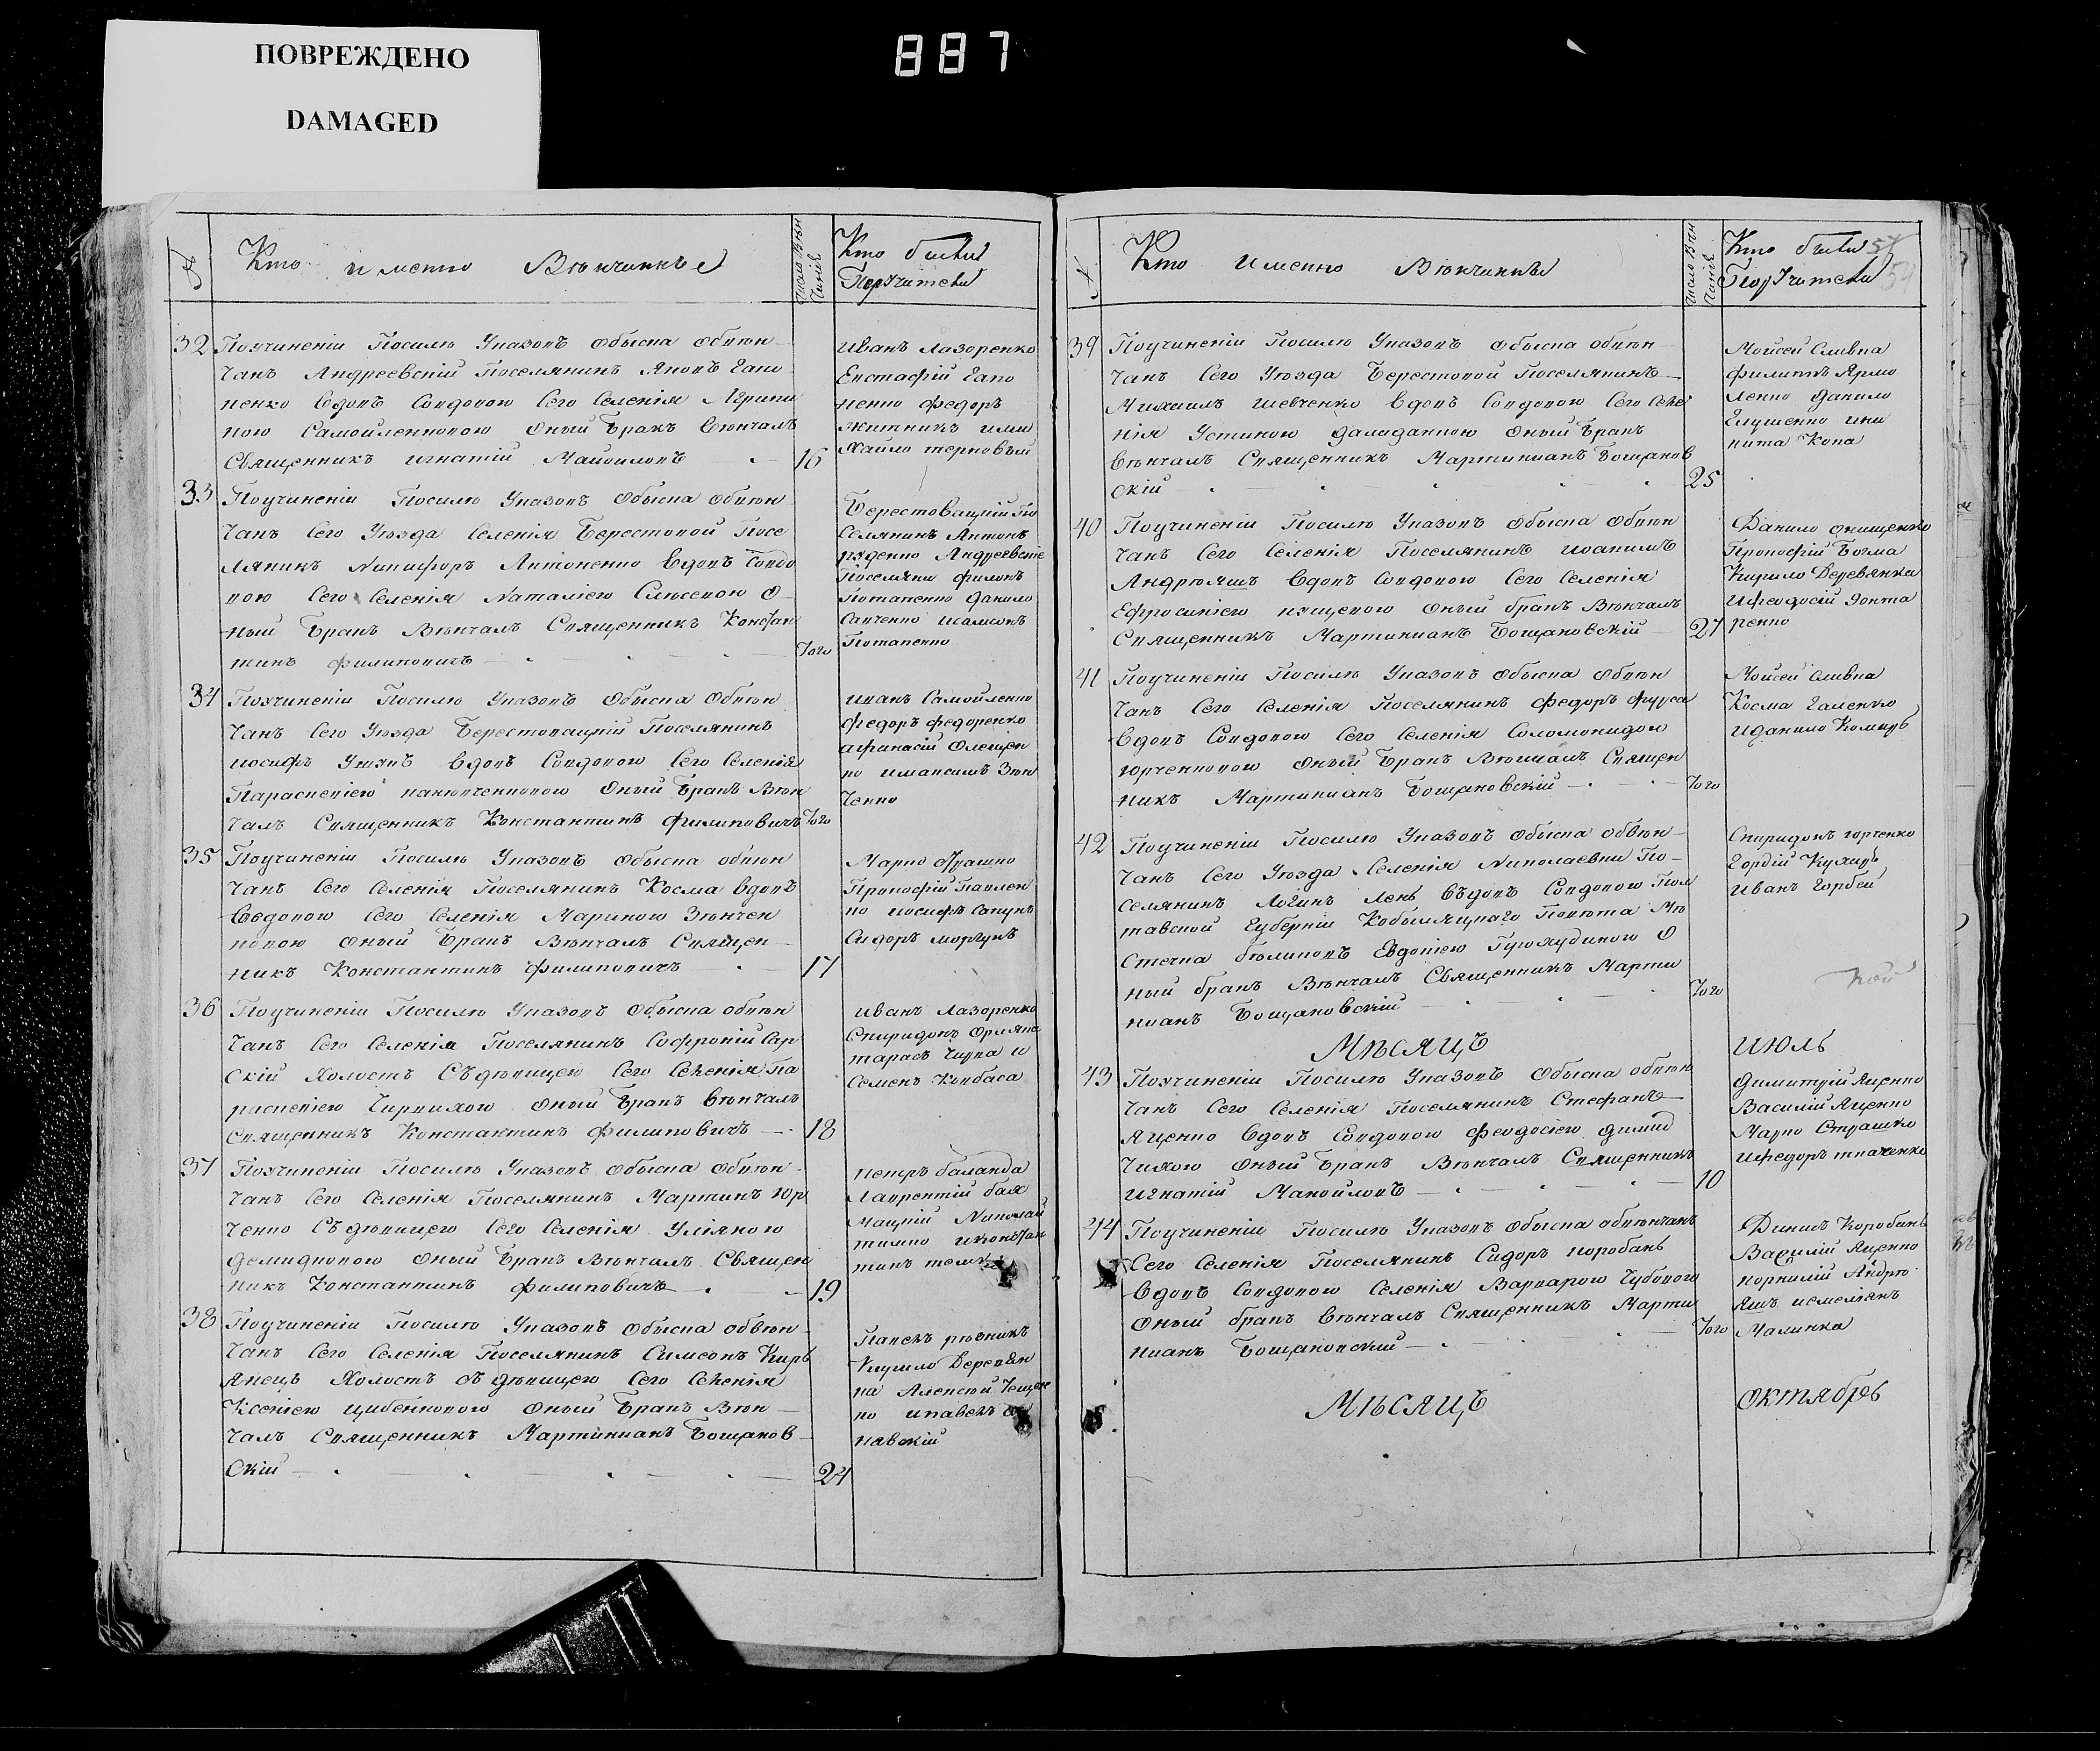 ПОВРЕЖДЕНО
DAMAGED
887
№
Кто именно Вѣнчинные
Число Вѣн
чаній
Кто были
Поручители
32
Поучиненіи Посилѣ Указовъ обыска обвѣн
чанъ Андреевскій Поселянинъ Яковъ Гапо
ненко вдовъ Совдовою Сего Селенія Агрипи
ною Самойленковою Оный Бракъ Вѣнчалъ
Священникъ Игнатій Манойловъ
16
Иванъ Лазоренко
Евстафій Гапо
ненко Федоръ
Житникъ и Ми
хайло Терновый
33
Поучиненіи Посилѣ Указовъ обыска обвѣн
чанъ Сего Уѣзда Селенія Берестовой Посе
лянинъ Никифоръ Антоненко вдовъ Совдо
вою Сего Селенія Наталіею Слюсевою О
ный Бракъ Вѣнчалъ Священникъ Констан
тинъ Филиповичъ
Того
Берестовацкій По
Селянинъ Антонъ
Руденко Андреевскіе
Поселяни Филонъ
Потапенко Данило
Савченко Исамсонъ
Потапенко
34
Поучиненіи Посилѣ Указовъ обыска обвѣн
чанъ Сего Уѣзда Берестовацкій Поселянинъ
Иосифъ вдовъ Совдовою Сего Селенія
Параскевіею Оный Бракъ Вѣн
чалъ Священникъ Константинъ Филиповичъ
Того
Иванъ Самойленко
Федоръ Федоренко
Афинасій Олещен
ко Имаксимъ Зѣн
ченко
35
Поучиненіи Посилѣ Указовъ обыска обвѣн
чанъ Сего Селенія Поселянинъ Косма вдовъ
Совдовою Сего Селенія Мариною Зѣнчен
ковою Оный Бракъ Вѣнчалъ Священ
никъ Константинъ Филиповичъ
17
Марко
Прокофій Павлен
ко Иосифъ Сапунъ
Сидоръ Моргунъ
36
Поучиненіи Посилѣ Указовъ обыска обвѣн
чанъ Сего Селенія Поселянинъ Софроній Сар
скій Холостъ Съдѣвицею Сего Селенія Па
раскевіею Оный Бракъ Вѣнчалъ
Священникъ Константинъ Филиповичъ
18
Иванъ Лазоренко
Спиридонъ
Тарасъ и
Семенъ Ковбаса
37
Поучиненіи Посилѣ Указовъ обыска обвѣн
чанъ Сего Селенія Поселянинъ Мартинъ Юр
ченко Съдѣвицею Сего Селенія Уліяною
Демидковою Оный Бракъ Вѣнчалъ Священ
никъ Константинъ Филиповичъ
19
Петръ Баланда
Лаврентій
Николай
Иконстан
тинъ
38
Поучиненіи Посилѣ Указовъ обыска обвѣн
чанъ Сего Селенія Поселянинъ Симеонъ Кирь
янець Холостъ Съ дѣвицею Сего Селенія
Ксеніею Цибенковою Оный Бракъ Вѣн
чалъ Священникъ Мартиніанъ Бощанов
скій
24
Павелъ Рѣзникъ
Кирило Деревян
ка Алексѣй
ко Ипавелъ
навскій
№
Кто именно Вѣнчинные
Число Вѣн
чаній
Кто были 54
Поручители 54
39
Поучиненіи Посилѣ Указовъ обыска обвѣн
чанъ Сего Уѣзда Берестовой Поселянинъ
Михаилъ Шевченко вдовъ Совдовою Сего Селе
нія Устиною Оный Бракъ
Вѣнчалъ Священникъ Мартиніанъ Бощанов
скій
25
Мойсей Сливка
Филиппъ Ярмо
ленко Данило
Глушенко Ини
кита Копа
40
Поучиненіи Посилѣ Указовъ обыска обвѣн
чанъ Сего Селенія Поселянинъ Иоакимъ
Андрюяшъ вдовъ Совдовою Сего Селенія
Ефросиніею Куцевою Оный Бракъ Вѣнчалъ
Священникъ Мартиніанъ Бощановскій
27
Данило Онищенко
Прокофій Богма
Кирило Деревянка
Ифеодосій Гонта
ренко
41
Поучиненіи Посилѣ Указовъ обыска обвѣн
чанъ Сего Селенія Поселянинъ Федоръ Фурса
вдовъ Совдовою Сего Селенія Соломонидою
Юрченковою Оный Бракъ Вѣнчалъ Священ
никъ Мартиніанъ Бощановскій
Того
Мойсей Сливка
Косма Галенко
Иданило
42
Поучиненіи Посилѣ Указовъ обыска обвѣн
чанъ Сего Уѣзда Селенія Николаевки По
селянинъ Логинъ Лень Въдовъ Совдовою Пол
тавской Губерніи Кобыляцкаго Повѣта Мѣ
стечка Бѣликовъ Евдокіею О
ный бракъ Вѣнчалъ Священникъ Марти
ніанъ Бощановскій
Того
Спиридонъ Юрченко
Гордій
Иванъ Горбей
Кой
Мѣсяцъ
Июль
43
Поучиненіи Посилѣ Указовъ обыска обвѣн
чанъ Сего Селенія Поселянинъ Стефанъ
Яценко вдовъ Совдовою Феодосіею
Оный Бракъ Вѣнчалъ Священникъ
Игнатій Манойловъ
10
Димитрій Яценко
Василій Яценко
Марко Страшко
Ифедоръ Ткаченко
44
Поучиненіи Посилѣ Указовъ обыска обвѣнчанъ
Сего Селенія Поселянинъ Сидоръ Коробань
вдовъ Совдовою Селенія Варварою Чубовою
Оный бракъ Вѣнчалъ Священникъ Марти
ніанъ Бощановскій
Того
Коробань
Василій Яценко
Корнилій Андрю
яшъ Иемелянъ
Малинка
Мѣсяцъ
Октябрь